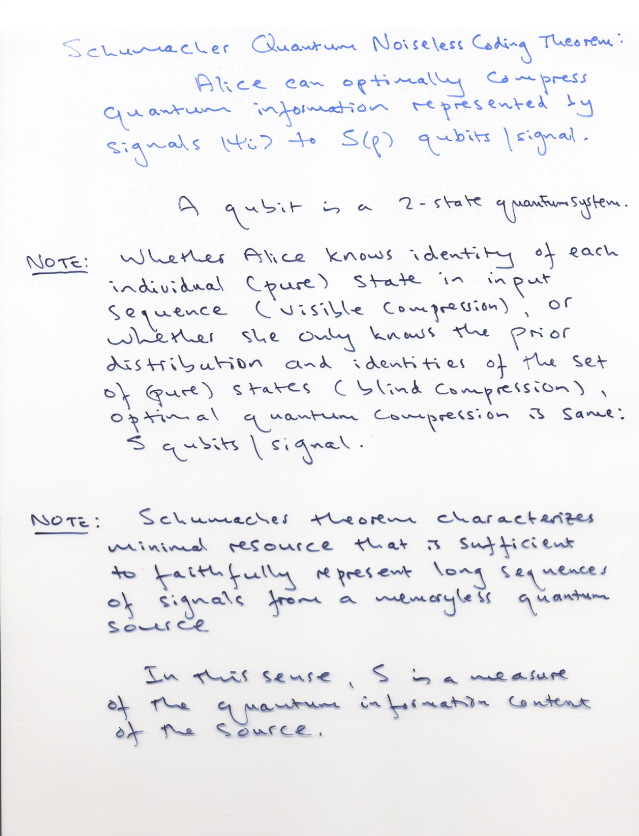 Schumacher Quantum Noiseless Coding Theorem:
Alice can optimally compress
quantum information represented by
signals |ψi> to S(ρ) qubits/signal.
A qubit is a 2-state quantum system.
NOTE: Whether Alice knows identity of each
individual (pure) state in input
sequence (visible compression), or
whether she only knows the prior
distribution and identities of the set
of (pure) states (blind compression),
optimal quantum compression is same:
S qubits/signal.
NOTE: Schumacher theorem characterizes
minimal resource that is sufficient
to faithfully represent long sequences
of signals from a memoryless quantum
source
In this sense, S is a measure
of the quantum information content
of the source.